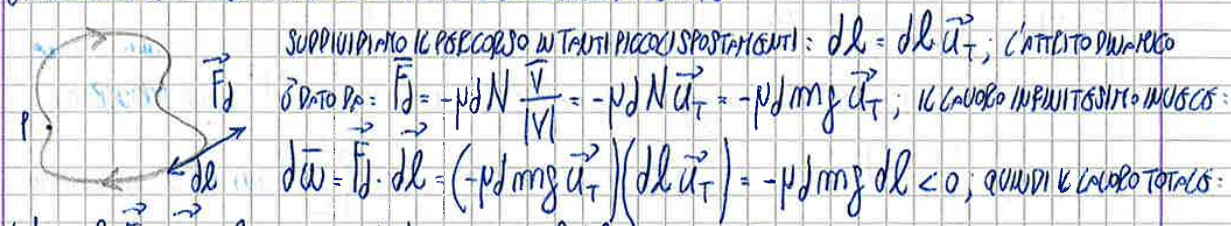 SUDDIVIDIAMO IL PERCORSO IN TANTI PICCOLI SPOSTAMENTI: dl = dl u⃗_T; L'ATTRITO DINAMICO
F⃗d
È DATO DA: F⃗d = -μd N V⃗/|V⃗| = -μd N u⃗_T = -μd mg u⃗_T; IL LAVORO INFINITESIMO INVECE:
P
dl
dw̅ = F⃗d · dl⃗ = (-μd mg u⃗_T)(dl u⃗_T) = -μd mg dl < 0; QUINDI IL LAVORO TOTALE: